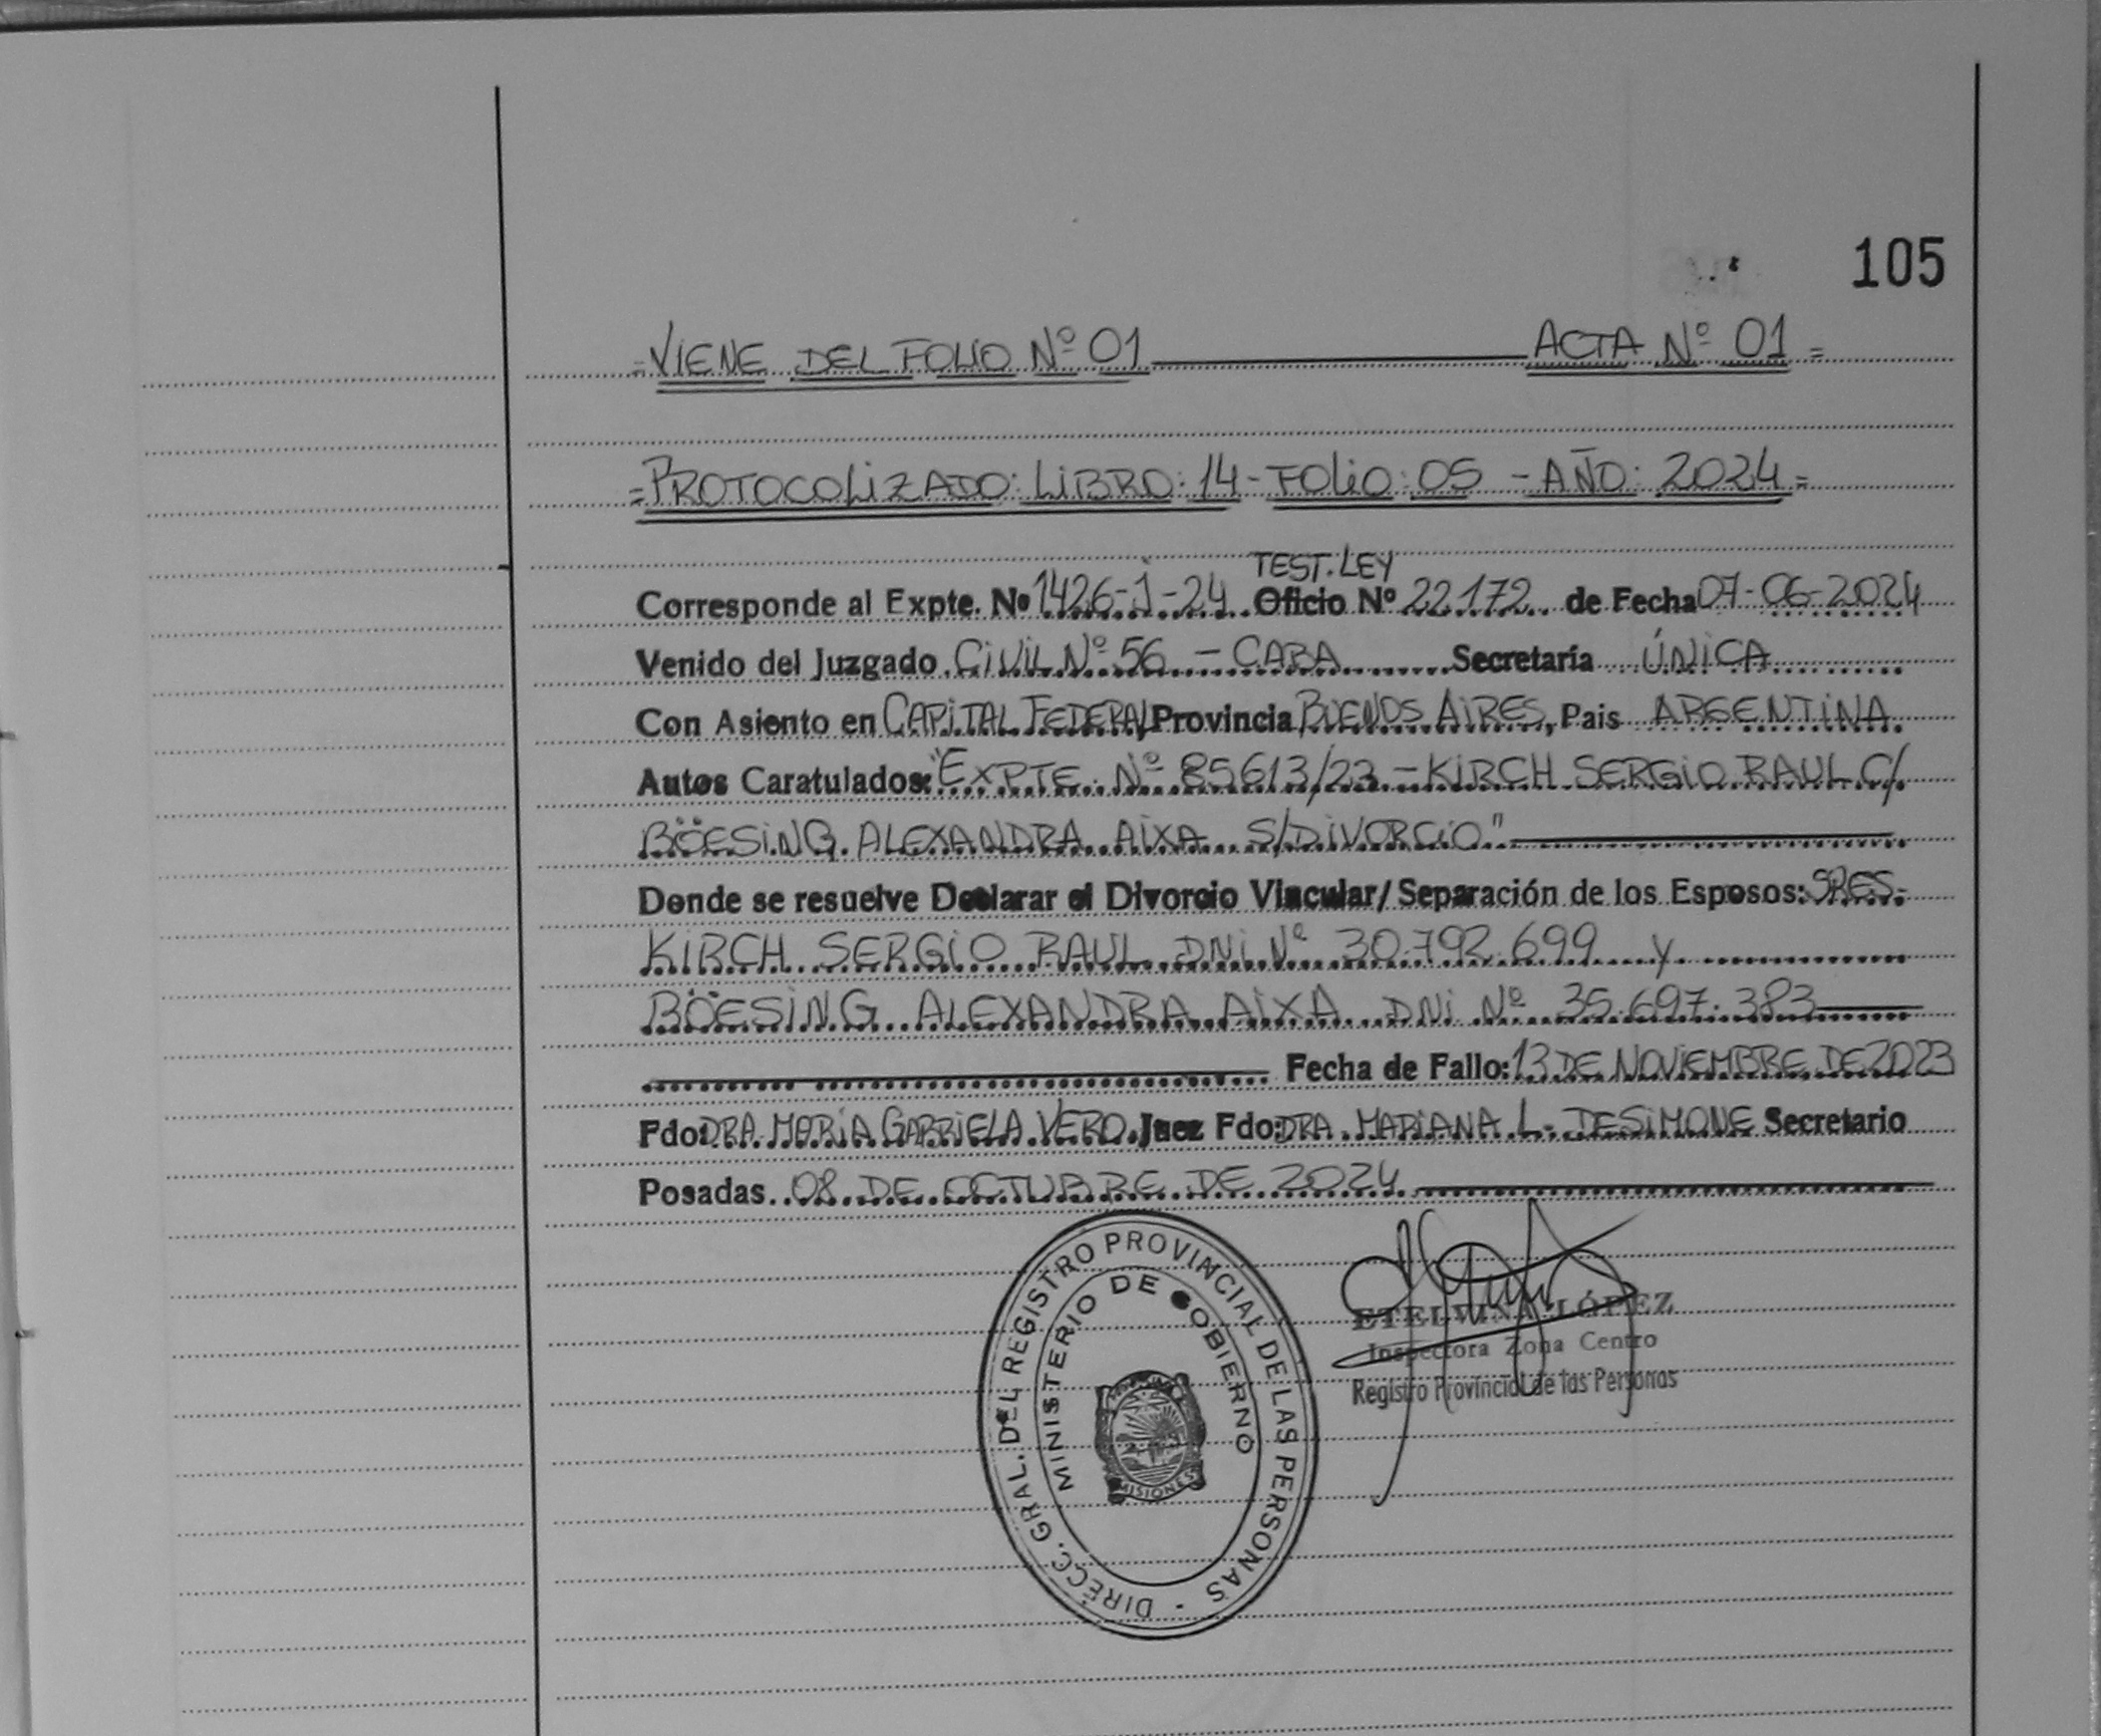 105
=VIENE DEL FOLIO Nº 01 ACTA Nº 01=
=PROTOCOLIZADO: LIBRO: 14 - FOLIO: 05 - AÑO: 2024=
TEST. LEY
Corresponde al Expte. Nº 1426-J-24 Oficio Nº 22.172 de Fecha 07-06-2024
Venido del Juzgado CIVIL Nº 56 - CABA Secretaría ÚNICA
Con Asiento en CAPITAL FEDERAL Provincia BUENOS AIRES, Pais ARGENTINA.
Autos Caratulados: "EXPTE. Nº 85613/23 - KIRCH SERGIO RAUL C/
BÖESING ALEXANDRA AIXA S/DIVORCIO"
Donde se resuelve Declarar el Divorcio Vincular/Separación de los Esposos: SRES.
KIRCH SERGIO RAUL DNI Nº 30.792.699 y
BÖESING ALEXANDRA AIXA DNI Nº 35.697.383
Fecha de Fallo: 13 DE NOVIEMBRE DE 2023
Fdo: DRA. MARÍA GABRIELA VERO Juez Fdo: DRA. MARIANA L. DESIMONE Secretario
Posadas 08 DE OCTUBRE DE 2024
DIRECC. GRAL. DEL REGISTRO PROVINCIAL DE LAS PERSONAS -
MINISTERIO DE GOBIERNO
MISIONES
ETELVINA LÓPEZ
Inspectora Zona Centro
Registro Provincial de las Personas